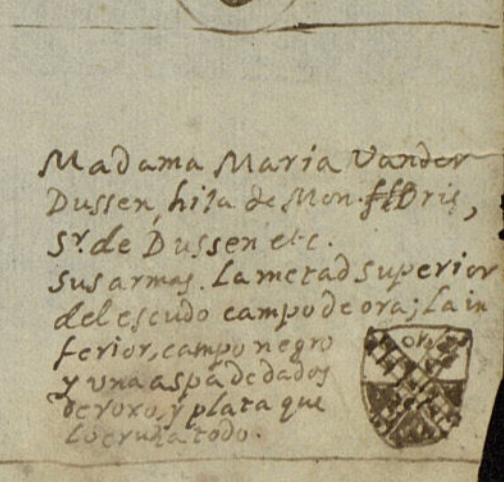 Madama Maria Vander
Dussen, hija de Mon. Bris,
Sr. de Dussen etc.
Sus armas. La metad superior
del escudo campo de oro; La in
ferior, campo negro
y una aspa de dados
de roxo, y plata que
lo cruza todo.
oro